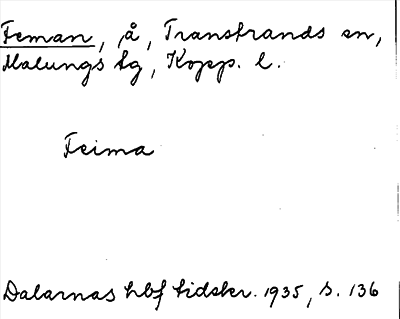 Feman, å, Transtrands sn,
Malungs tg, Kopp. l.
Feima
Dalarnas hbf tidskr. 1935, s. 136